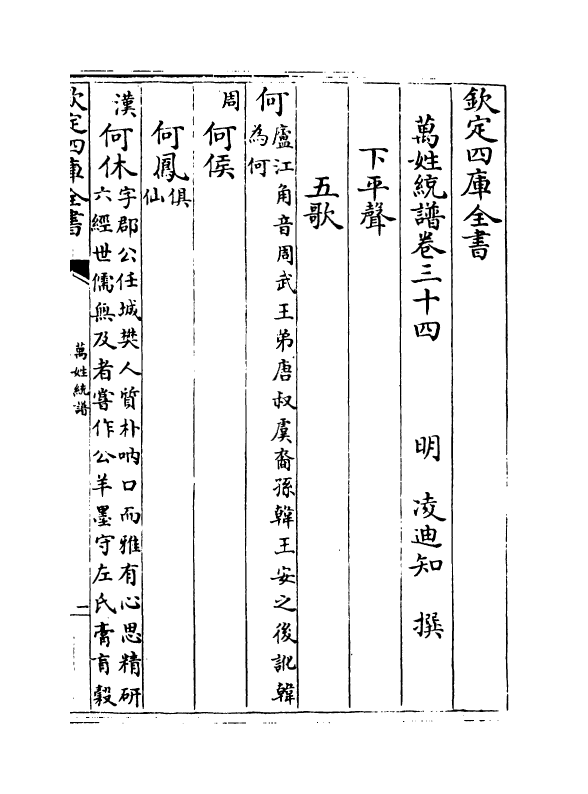 欽定四庫全書
萬姓統譜卷三十四
明 凌迪知 撰
下平聲
五歌
何
廬江角音周武王弟唐叔虞裔孫韓王安之後訛韓
為何
周 何侯
何鳳
俱
仙
漢 何休
字郡公任城樊人質朴吶口而雅有心思精研
六經世儒無及者嘗作公羊墨守左氏膏肓穀
欽定四庫全書
萬姓統譜
一